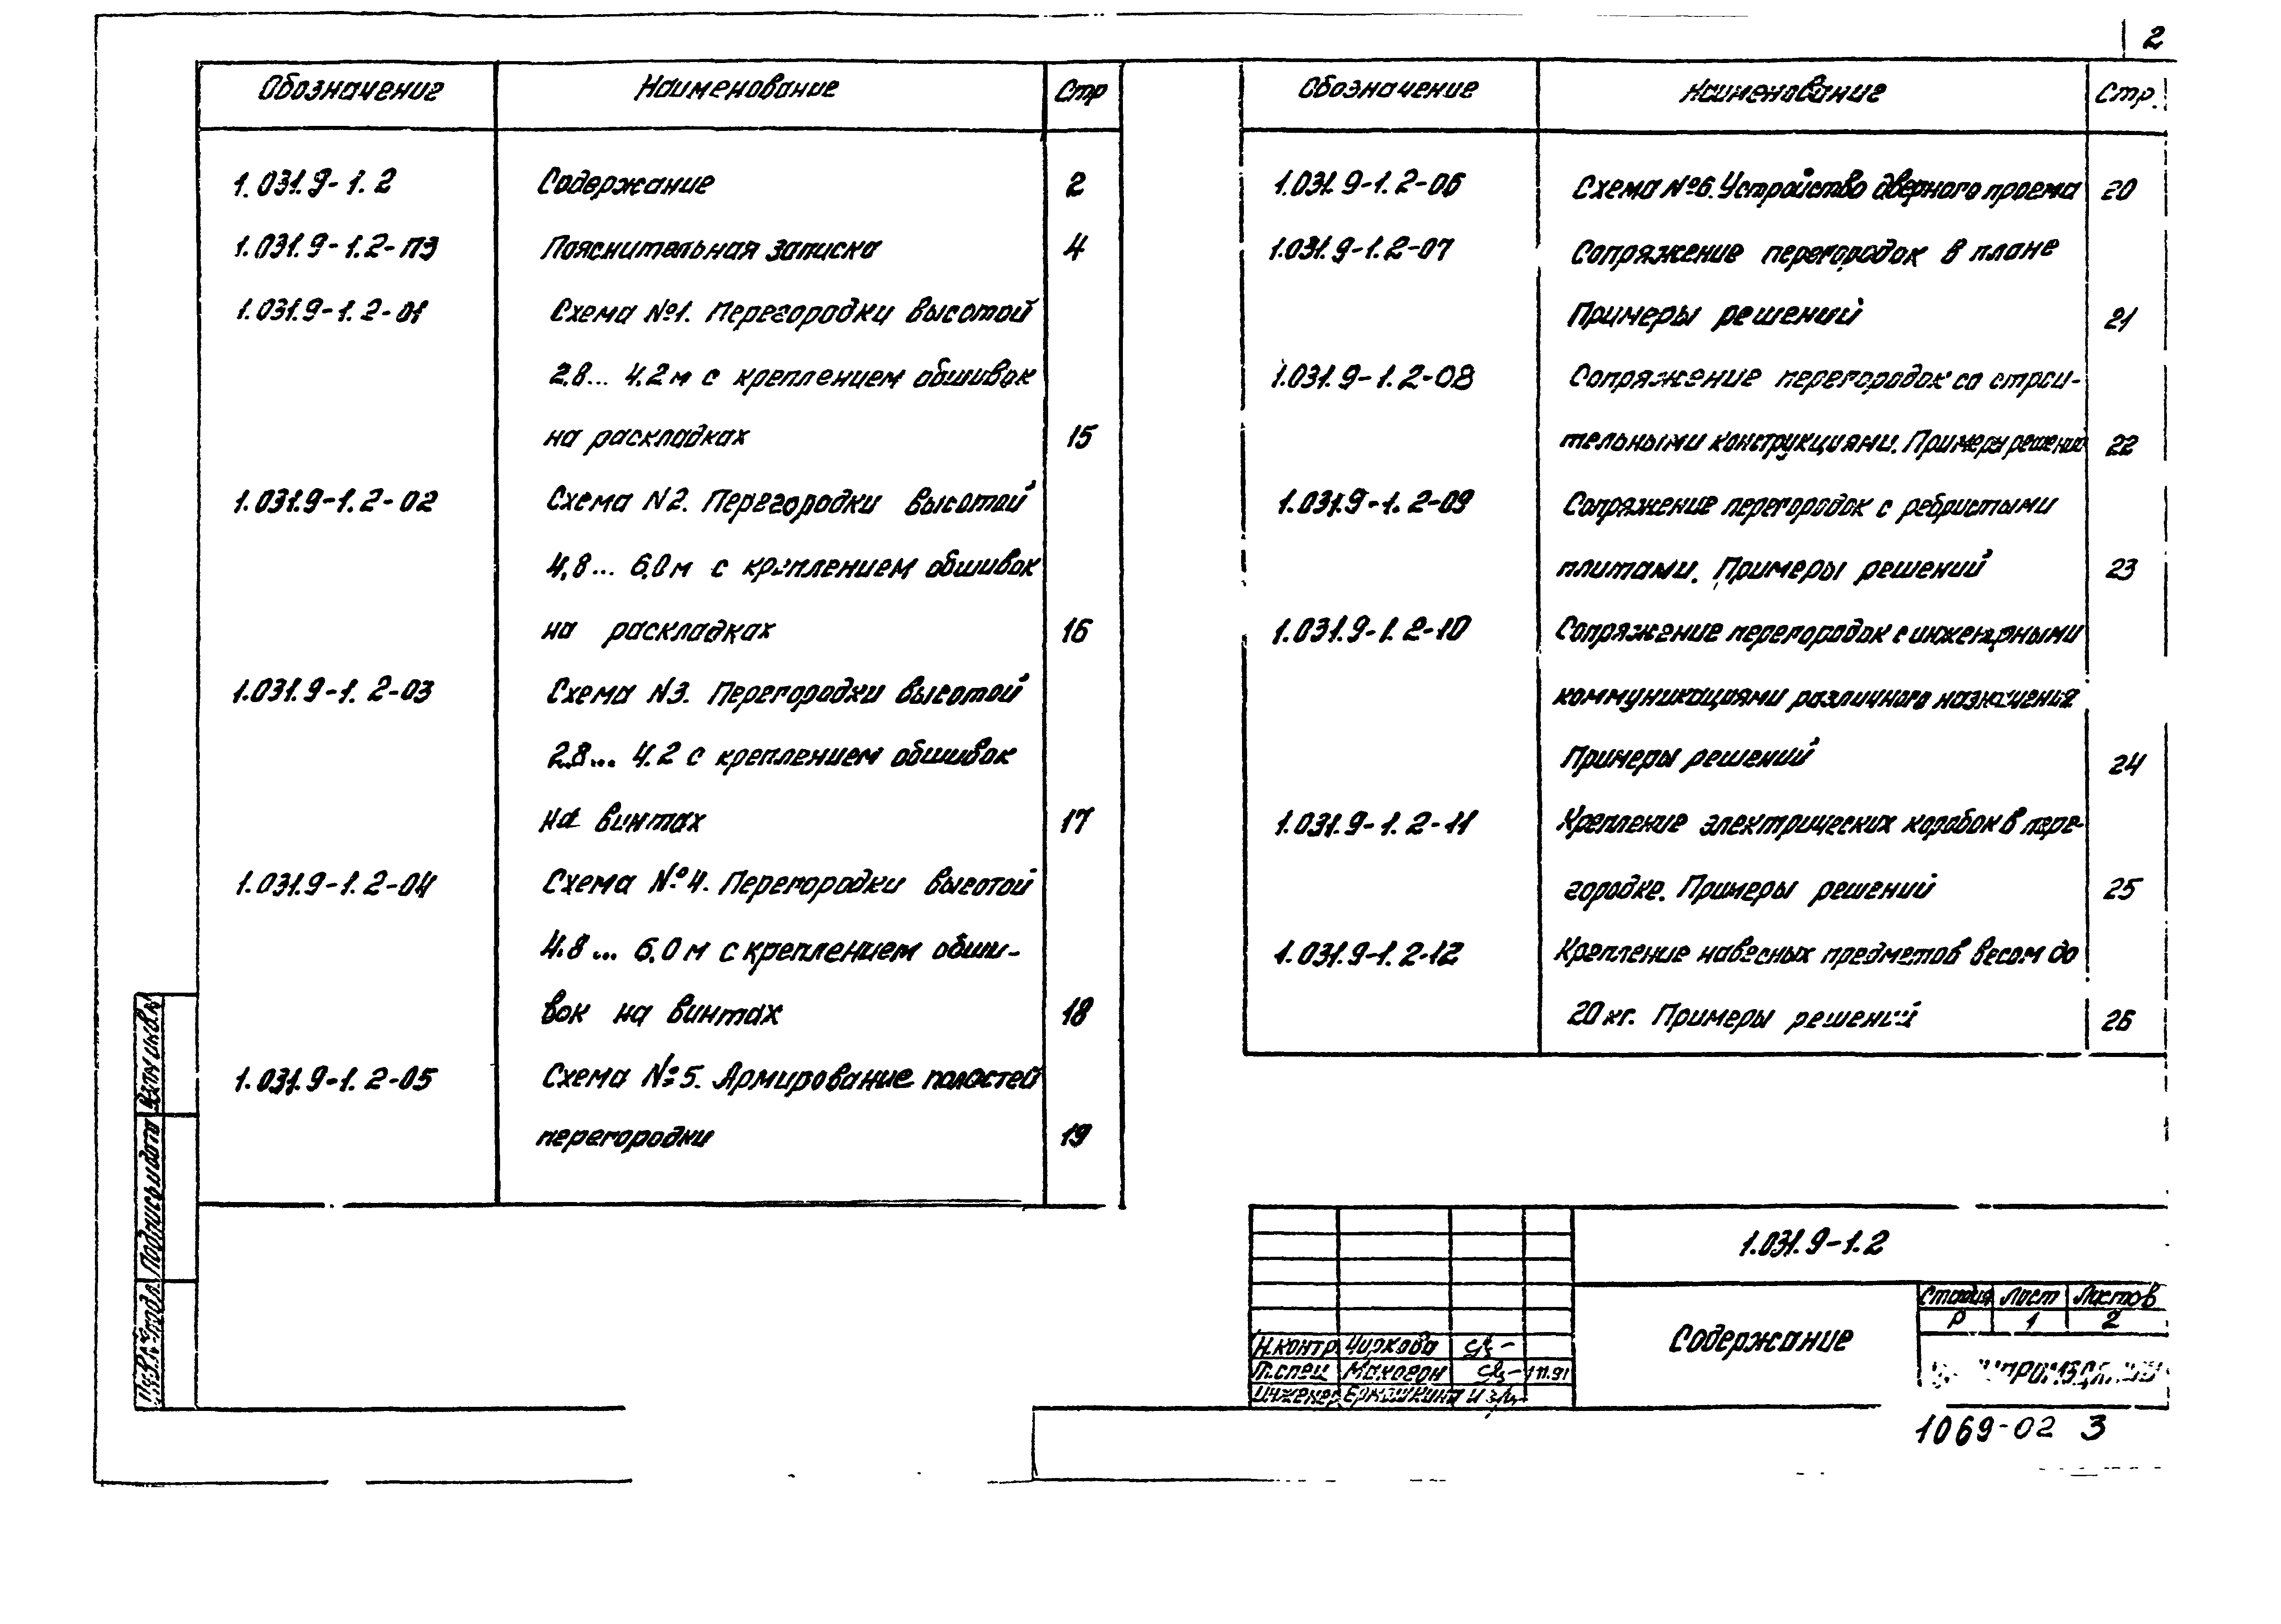 2
Обозначение Наименование Стр
1.031.9-1.2 Содержание 2
1.031.9-1.2-ПЗ Пояснительная записка 4
1.031.9-1.2-01 Схема №1. Перегородки высотой
2.8... 4.2м с креплением обшивок
на раскладках 15
1.031.9-1.2-02 Схема N2. Перегородки высотой
4,8... 6.0м с креплением обшивок
на раскладках 16
1.031.9-1.2-03 Схема N3. Перегородки высотой
2.8... 4.2 с креплением обшивок
на винтах 17
1.031.9-1.2-04 Схема №4. Перегородки высотой
4.8... 6.0м с креплением обши-
вок на винтах 18
1.031.9-1.2-05 Схема №5. Армирование полостей
перегородки 19
Обозначение Наименование Стр.
1.031.9-1.2-06 Схема №6. Устройство дверного проема 20
1.031.9-1.2-07 Сопряжение перегородок в плане
Примеры решений 21
1.031.9-1.2-08 Сопряжение перегородок со строи-
тельными конструкциями. Примеры решений 22
1.031.9-1.2-09 Сопряжение перегородок с ребристыми
плитами. Примеры решений 23
1.031.9-1.2-10 Сопряжение перегородок с инженерными
коммуникациями различного назначения
Примеры решений 24
1.031.9-1.2-11 Крепление электрических коробок в пере-
городке. Примеры решений 25
1.031.9-1.2-12 Крепление навесных предметов весом до
20кг. Примеры решений 26
Взам инв.№
Подпись и дата
Инв.№ подл.
1.031.9-1.2
Содержание
Стадия Лист Листов
Р 1 2
Н.контр Чиркова
Гл.спец Макогон 11.91
Инженер Ермишкина
1069-02 3